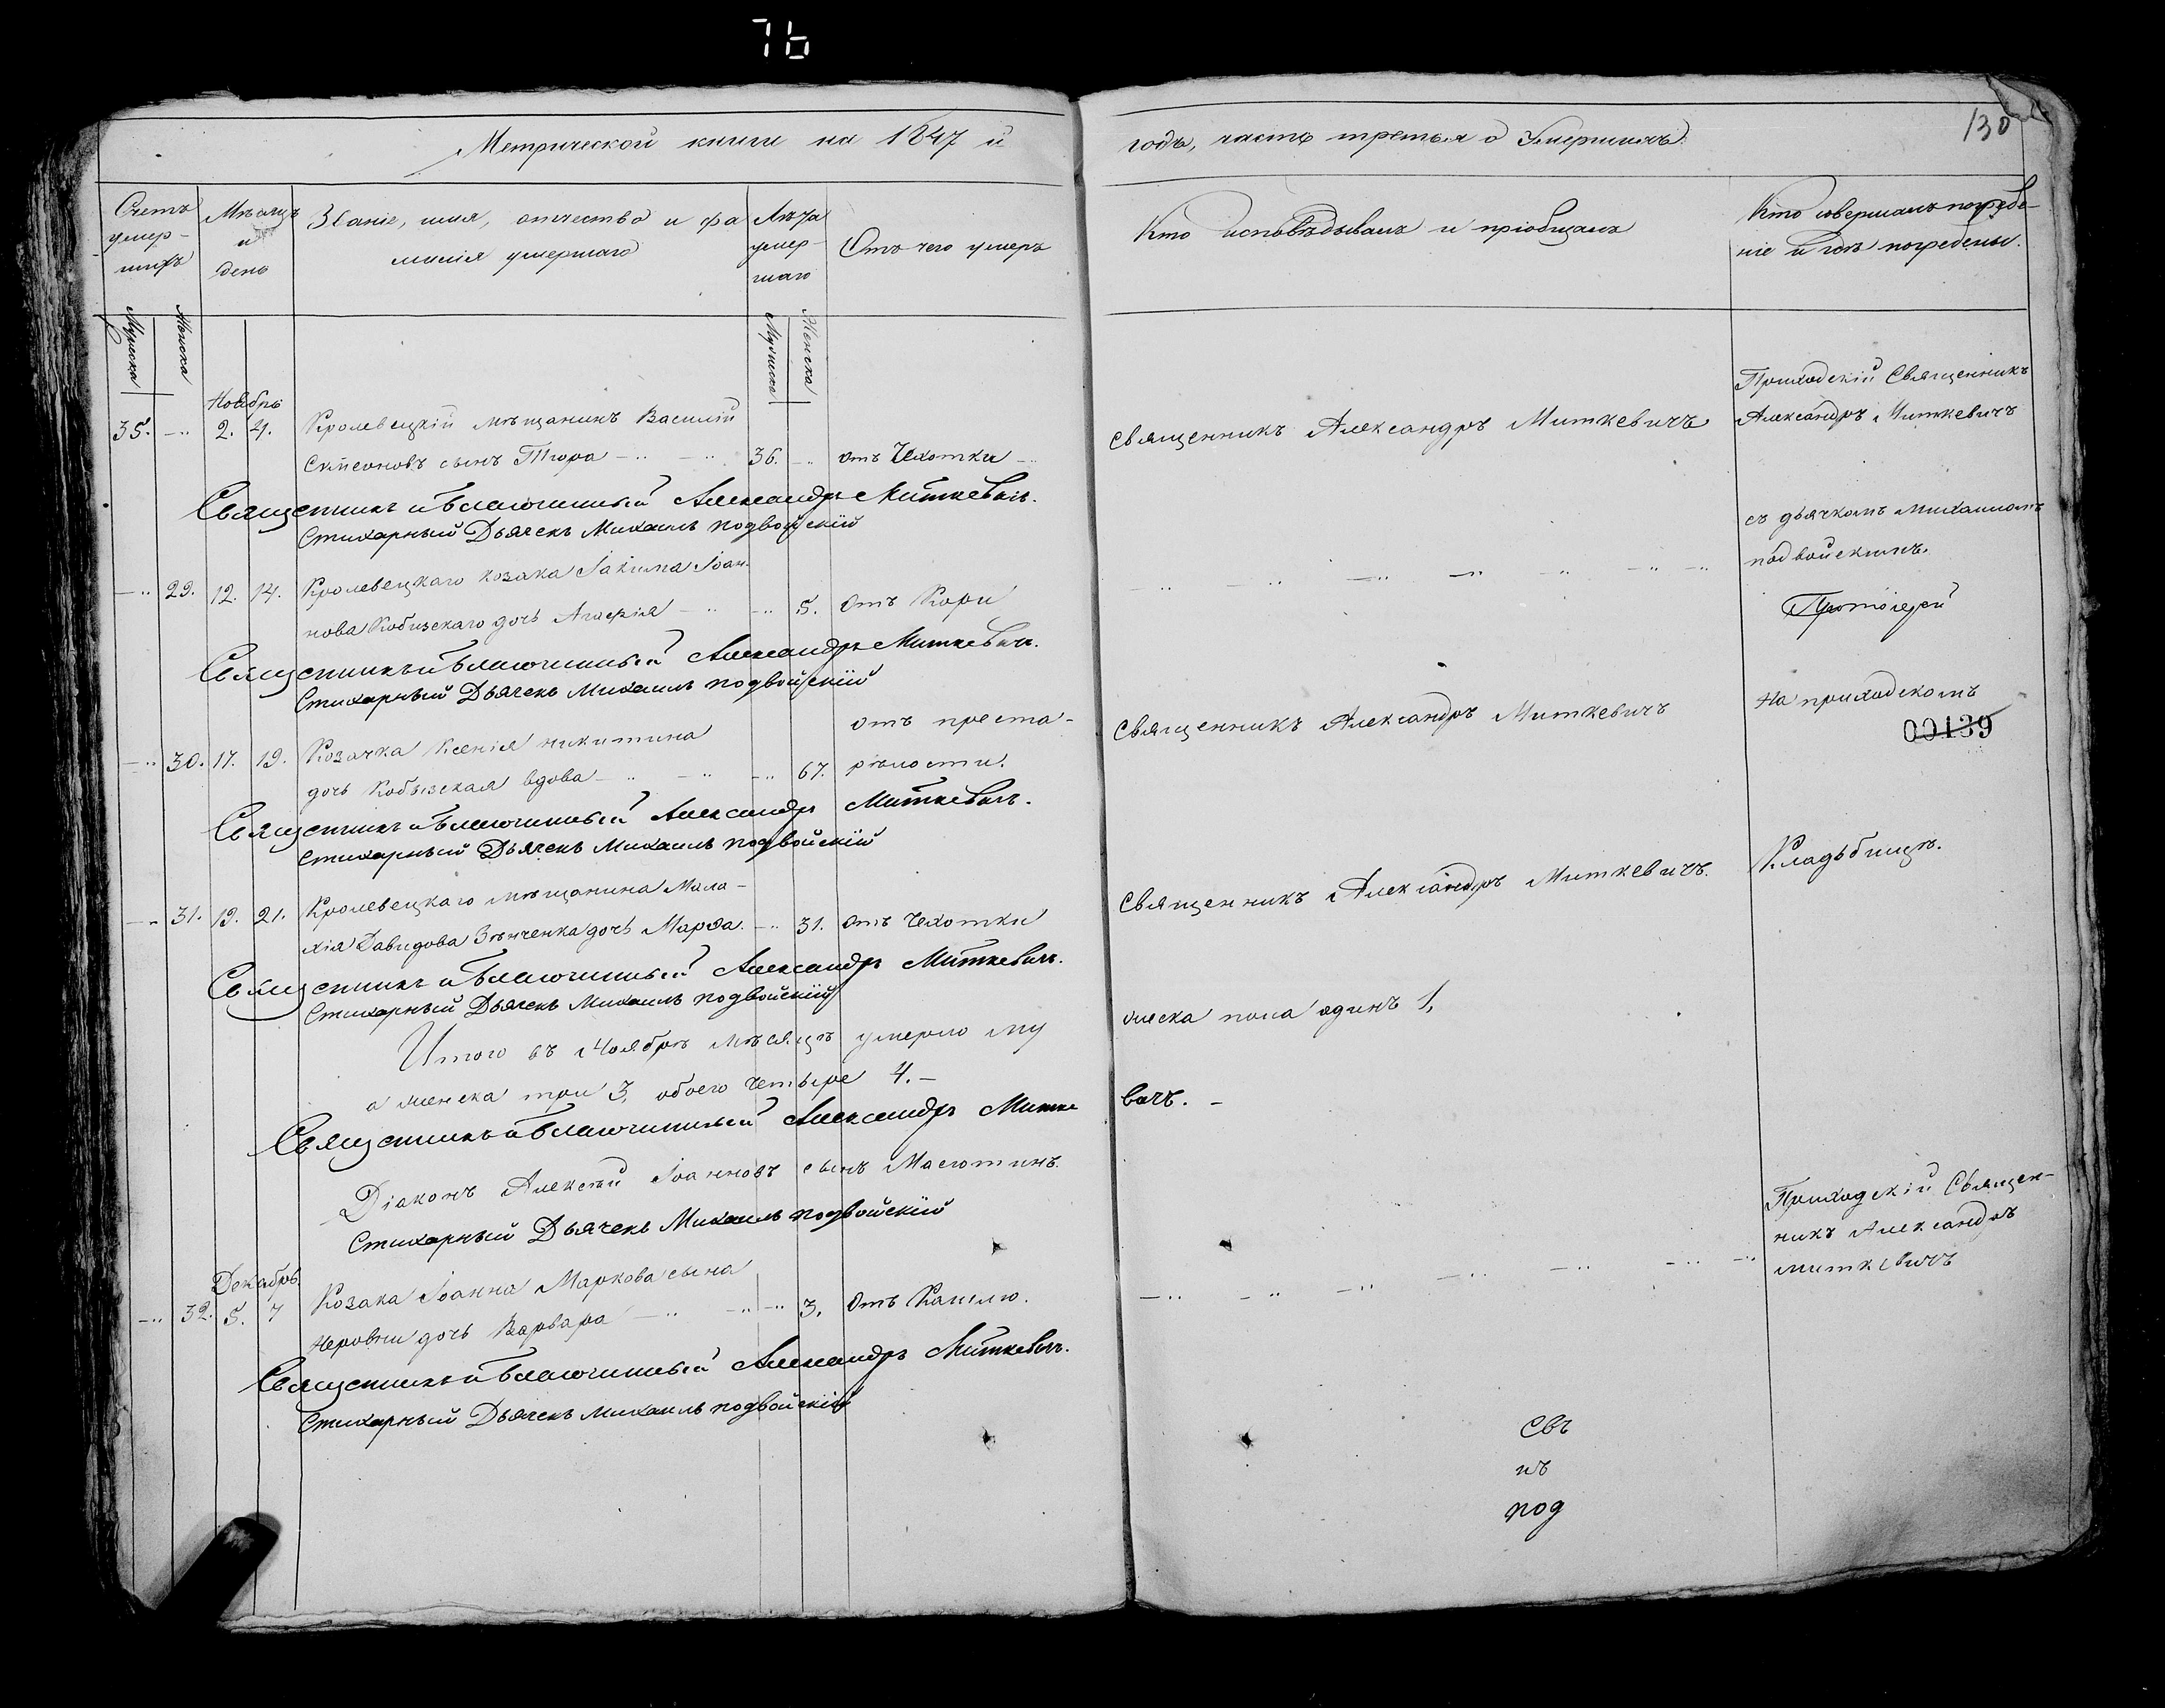 7b
Метрической книги на 1847 й
Счетъ умер-
шихъ
Мѣсяцъ
и
день
Званіе, имя, отчество и фа
милія умершаго
Лѣта
умер-
шаго
Отъ чего умеръ
Мужска
Женска
Мужска
Женска
Ноября
35. -„ 2. 4. Кролевецкій мѣщанинъ Василій
Симеоновъ сынъ -„ -„ 36. -„ отъ Чехотки -
Священникъ и Благочинный Александръ Миткевичъ.
Стихарный Дьячекъ Михаилъ подвойскій
-„ 29. 12. 14. Кролевецкаго козака Іакима Іоан-
нова Кобизскаго дочь -„ -„ 5. отъ Кори
Священникъ и Благочинный Александръ Миткевичъ.
Стихарный Дьячекъ Михаилъ подвойскій
-„ 30. 17. 19. Козачка Ксенія никитина
дочь Кобызская вдова -„ -„ -„ 67. отъ преста-
рѣлости.
Священникъ и Благочинный Александръ Миткевичъ.
Стихарный Дьячекъ Михаилъ подвойскій
-„ 31. 19. 21. Кролевецкаго мѣщанина Мала-
хія Давидова Зѣнченка дочь Марѳа. -„ 31. отъ Чехотки
Священникъ и Благочинный Александръ Миткевичъ.
Стихарный Дьячекъ Михаилъ подвойскій
Итого въ Ноябрѣ мѣсяцѣ умерло му
а женска три 3, обоего четыре 4.-
Священникъ и Благочинный Александръ Митке
Діаконъ Алексѣй Іоанновъ сынъ
Стихарный Дьячекъ Михаилъ подвойскій
Декабрь
-„ 32. 5. 7 Козака Іоанна Маркова сына
дочь Варвара -„ -„ -„ 3. отъ Кашлю.
Священникъ и Благочинный Александръ Миткевичъ.
Стихарный Дьячекъ Михаилъ подвойскій
130
годъ, часть третья о Умершихъ
Кто исповѣдывалъ и пріобщалъ
Кто совершалъ погребе-
ніе и гдѣ погребены.
Приходскій Священникъ
Священникъ Александръ Миткевичъ
Александръ Миткевичъ
съ дьячкомъ михаиломъ
подвойскимъ.
Протоіерей
На приходскомъ
00139
Священникъ Александръ Миткевичъ
Кладьбищѣ.
Священникъ Александръ Миткевичъ.
жеска пола одинъ 1,
вичъ. -
Приходскій Священ-
никъ Александръ
миткевичъ
Свъ
нъ
под